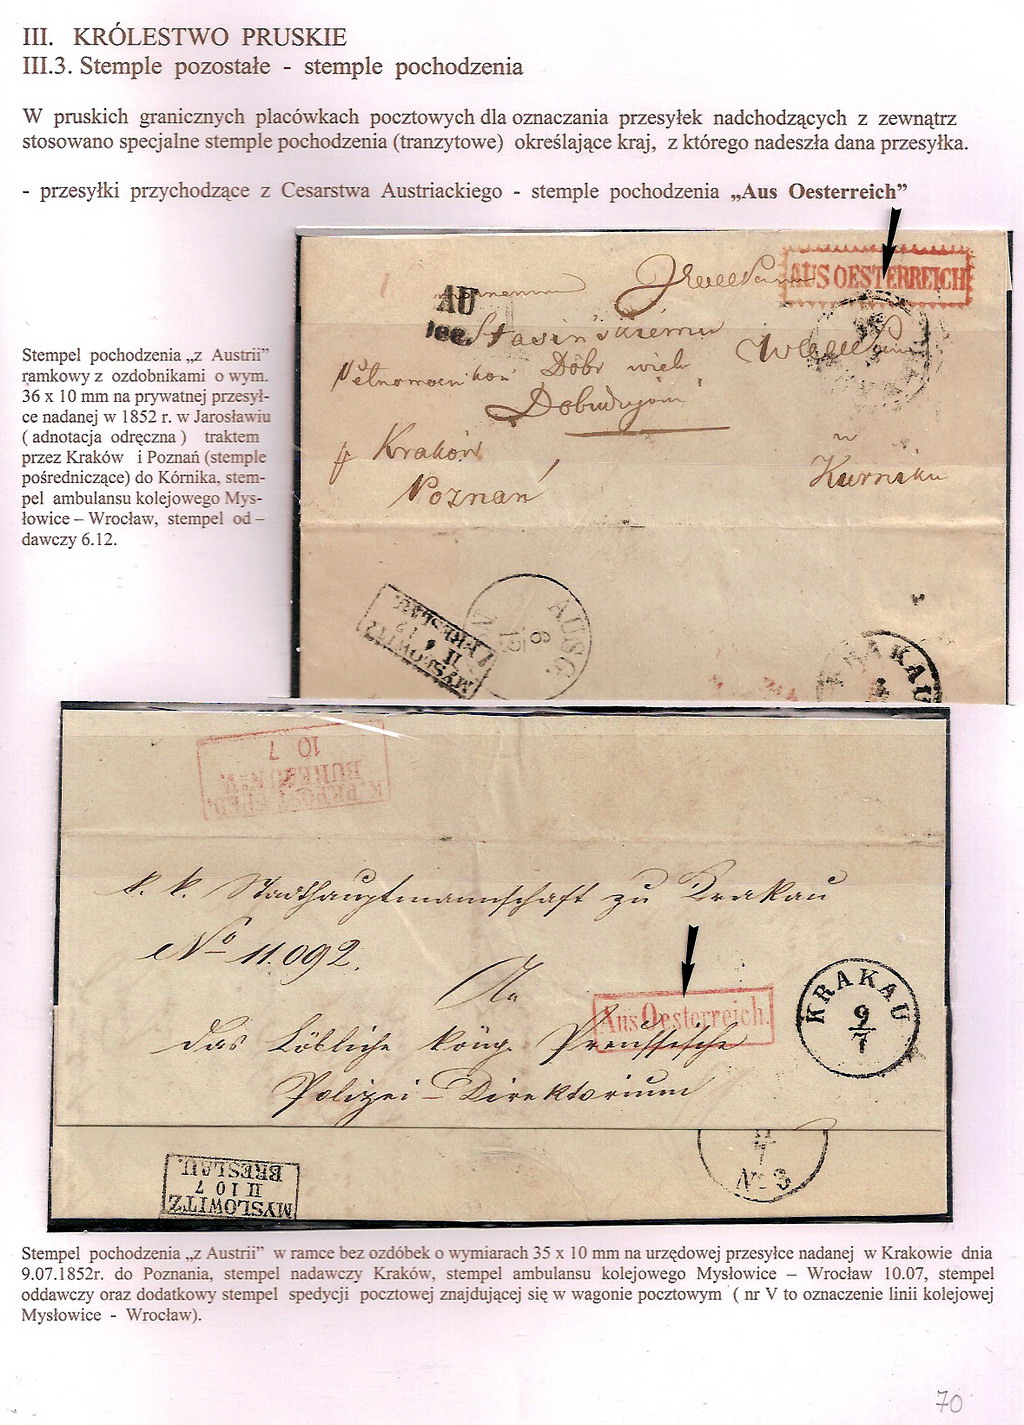 III. KRÓLESTWO PRUSKIE
III.3. Stemple pozostałe - stemple pochodzenia
W pruskich granicznych placówkach pocztowych dla oznaczania przesyłek nadchodzących z zewnątrz
stosowano specjalne stemple pochodzenia (tranzytowe) określające kraj, z którego nadeszła dana przesyłka.
- przesyłki przychodzące z Cesarstwa Austriackiego - stemple pochodzenia „Aus Oesterreich”
Stempel pochodzenia „z Austrii”
ramkowy z ozdobnikami o wym.
36 x 10 mm na prywatnej przesył-
ce nadanej w 1852 r. w Jarosławiu
( adnotacja odręczna ) traktem
przez Kraków i Poznań (stemple
pośredniczące) do Kórnika, stem-
pel ambulansu kolejowego Mys-
łowice – Wrocław, stempel od –
dawczy 6.12.
AUS OESTERREICH
AU
Stasińskiemu
Pełnomocnikowi Dóbr wielu
w
p Kraków
Kurniku
Poznań
AUSG.
6
12
MYSLOWITZ
II 12
BRESLAU.
KRAKAU
10 7
k. k. Stadthauptmannschaft zu Krakau
No 11.092.
An
Aus Oesterreich.
KRAKAU
9
7
das Löbliche köng. Preussische
Polizei-Direktorium
No 3
MYSLOWITZ
II 10 7
BRESLAU.
Stempel pochodzenia „z Austrii” w ramce bez ozdóbek o wymiarach 35 x 10 mm na urzędowej przesyłce nadanej w Krakowie dnia
9.07.1852r. do Poznania, stempel nadawczy Kraków, stempel ambulansu kolejowego Mysłowice – Wrocław 10.07, stempel
oddawczy oraz dodatkowy stempel spedycji pocztowej znajdującej się w wagonie pocztowym ( nr V to oznaczenie linii kolejowej
Mysłowice - Wrocław).
70